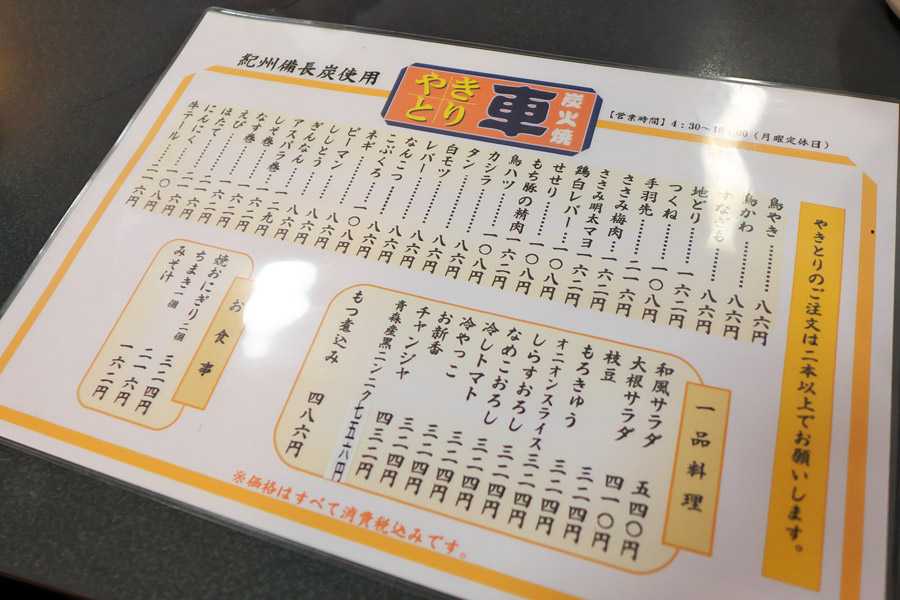 紀州備長炭使用
やきとり
車
炭火焼
【営業時間】4:30~10:00(月曜定休日)
やきとりのご注文は二本以上でお願いします。
鳥やき………八六円
鳥かわ………八六円
すなぎも……八六円
地どり………一六二円
つくね………一〇八円
手羽先………二一六円
ささみ梅肉…一六二円
ささみ明太マヨ 一六二円
鶏白レバー…一六二円
せせり………一〇八円
もち豚の精肉 一〇八円
鳥ハツ………一六二円
カシラ………一〇八円
タン…………八六円
白モツ………八六円
レバー………八六円
なんこつ……八六円
こぶくろ……八六円
ネギ…………八六円
ピーマン……一〇八円
ししとう……八六円
ぎんなん……八六円
アスパラ巻…八六円
しそ巻………一二九円
なす巻………一六二円
えび…………二一六円
ほたて………二一六円
にんにく……二一六円
牛テール……二一六円
一品料理
和風サラダ 五四〇円
大根サラダ 四一〇円
枝豆 三二四円
もろきゅう 三二四円
オニオンスライス 三二四円
しらすおろし 三二四円
なめこおろし 三二四円
冷しトマト 三二四円
冷やっこ 三二四円
お新香 三二四円
チャンジャ 四三二円
青森産黒ニンニク 七五十八円
もつ煮込み 四八六円
お食事
焼おにぎり 二個 三二四円
ちまき 一個 二一六円
みそ汁 一六二円
※価格はすべて消費税込みです。